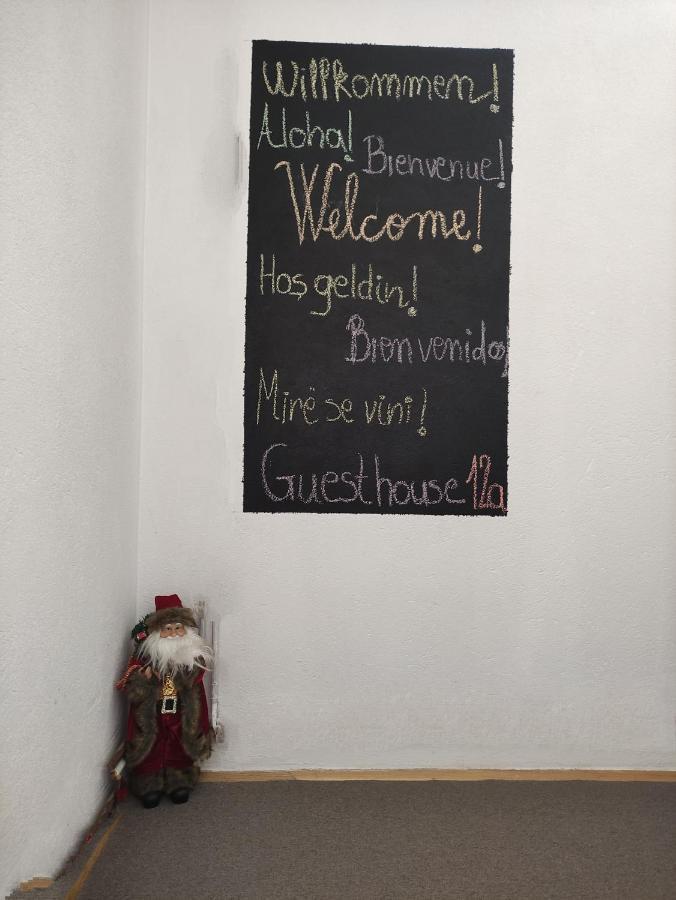 Willkommen!
Aloha!
Bienvenue!
Welcome!
Hoş geldin!
Bienvenidos
Mirë se vini!
Guesthouse 12a